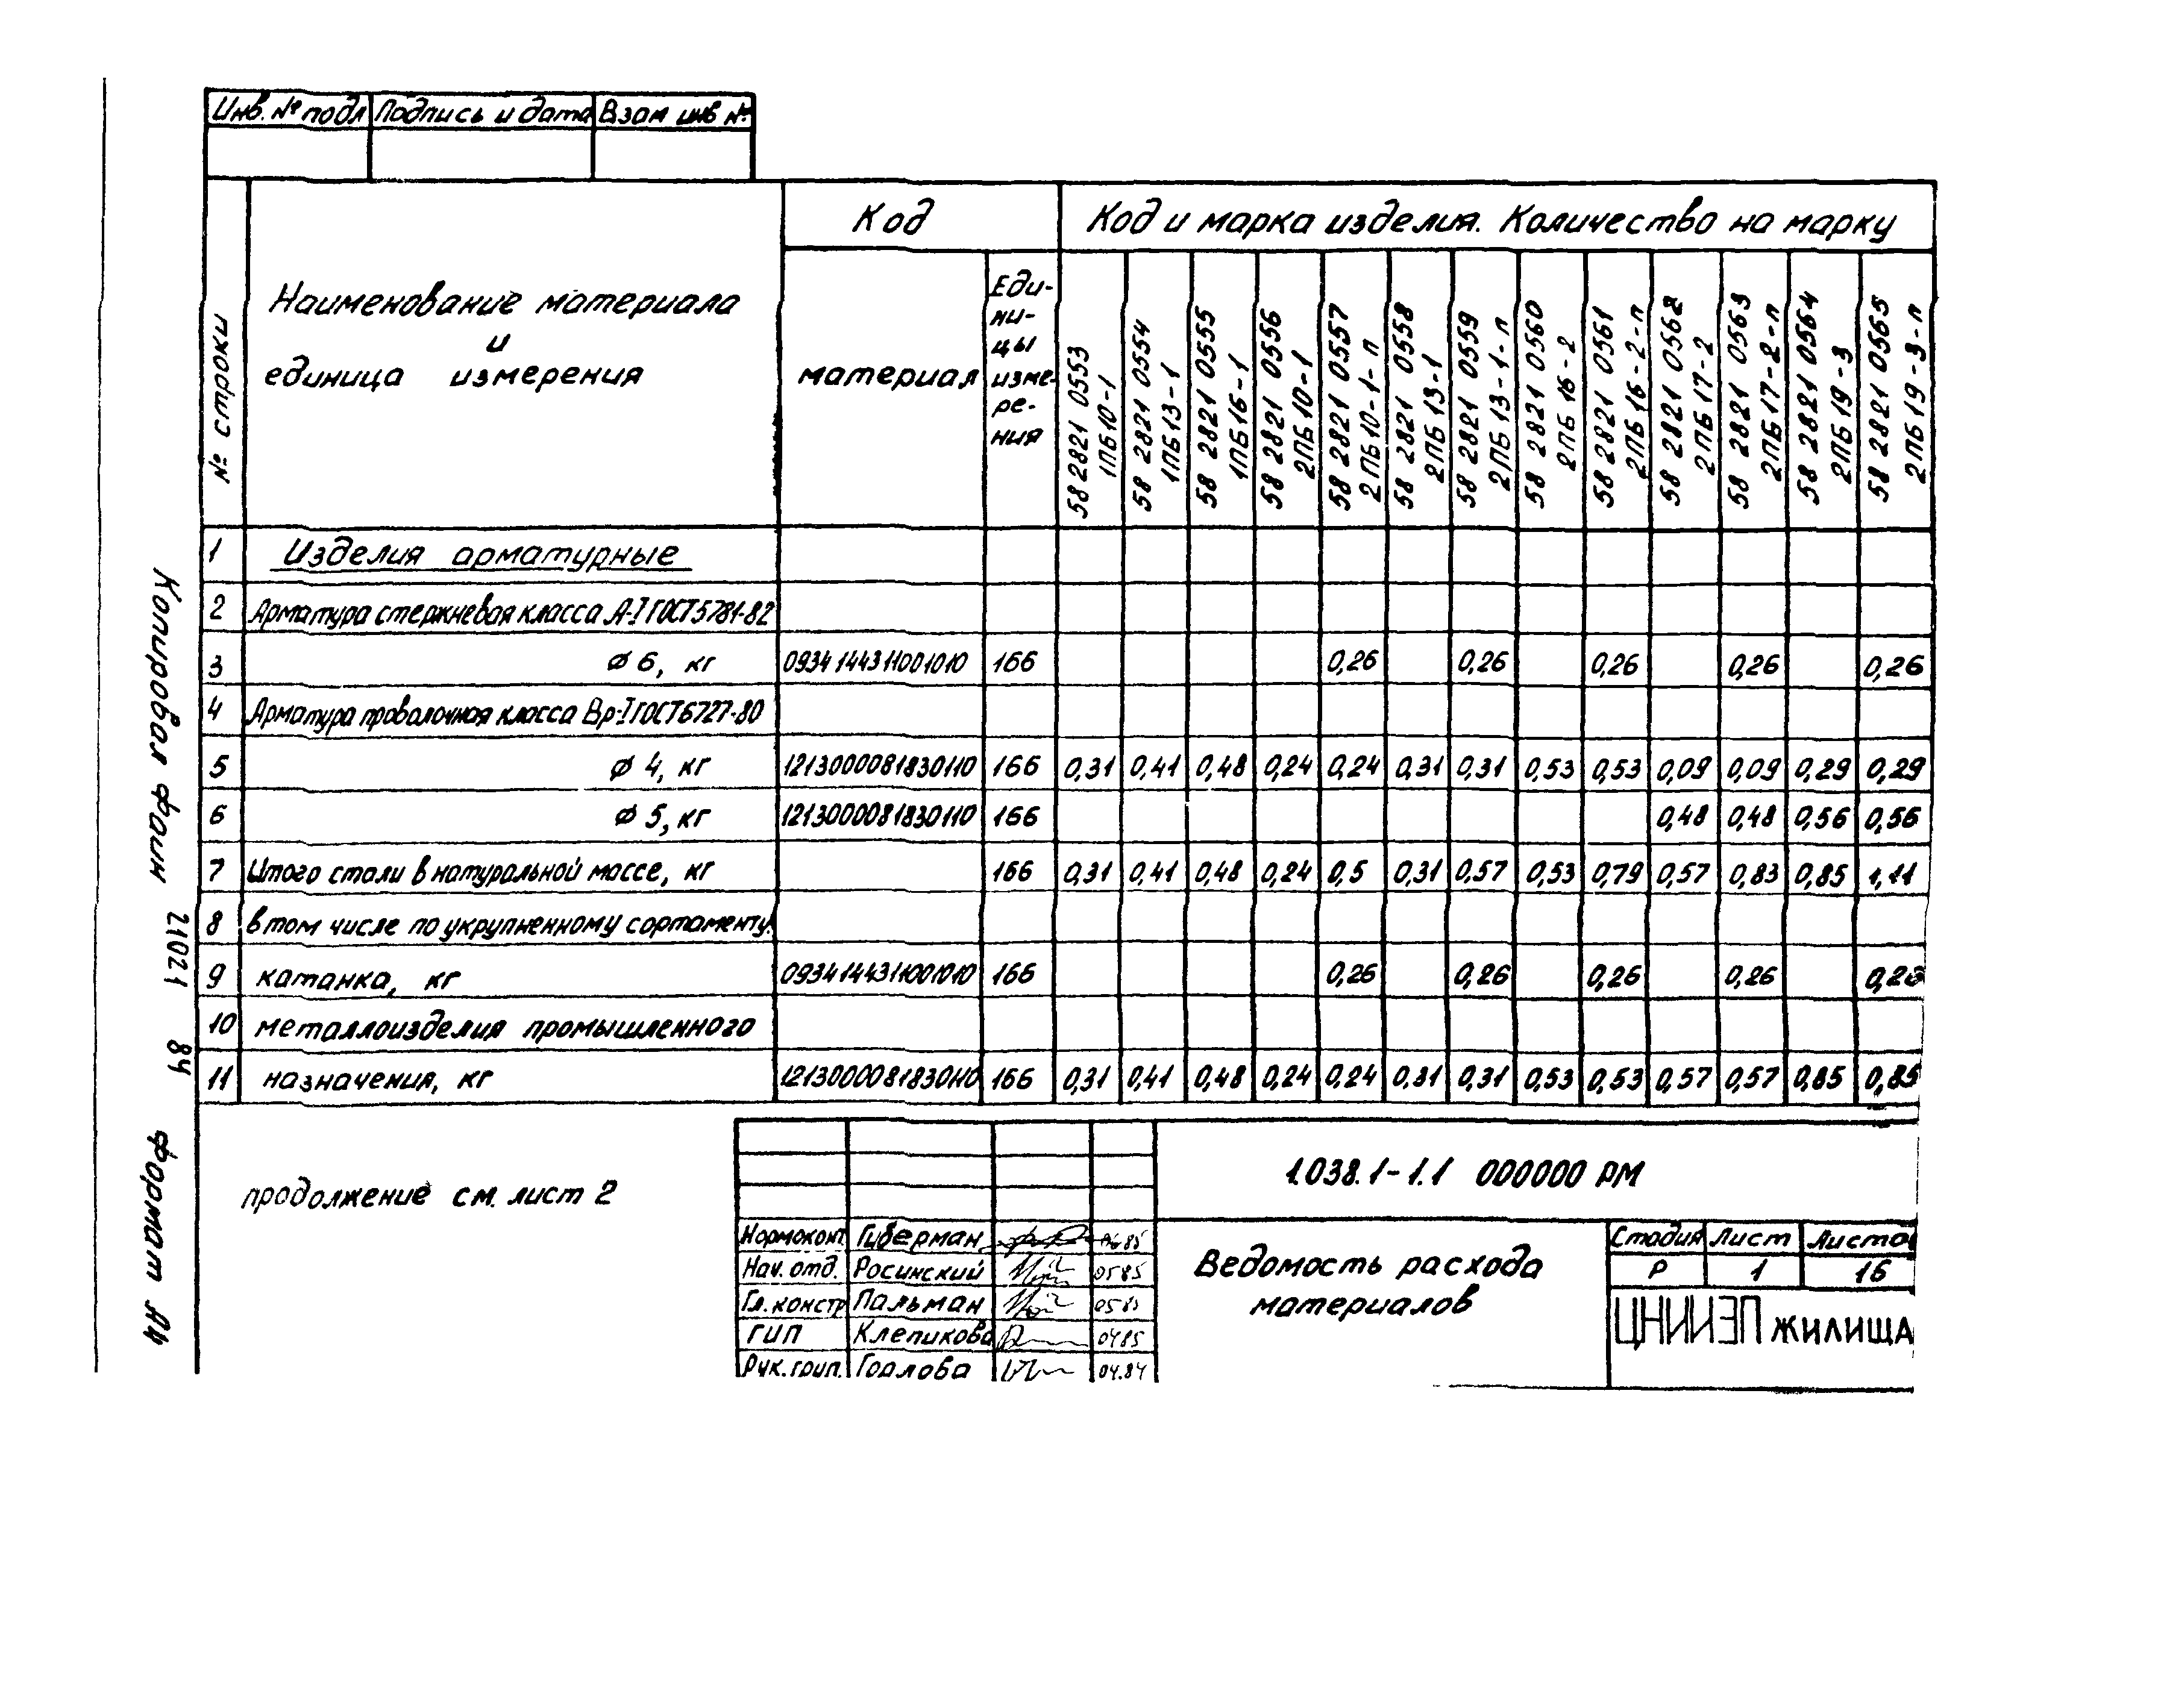 Инв. № подл Подпись и дата Взам инв №
№ строки
Наименование материала
и
единица измерения
Код
Код и марка изделия. Количество на марку
материал
Еди-
ни-
цы
изме-
ре-
ния
58 2821 0553
1ПБ10-1
58 2821 0554
1ПБ13-1
58 2821 0555
1ПБ16-1
58 2821 0556
2ПБ10-1
58 2821 0557
2ПБ10-1-п
58 2821 0558
2ПБ13-1
58 2821 0559
2ПБ13-1-п
58 2821 0560
2ПБ16-2
58 2821 0561
2ПБ16-2-п
58 2821 0562
2ПБ17-2
58 2821 0563
2ПБ17-2-п
58 2821 0564
2ПБ19-3
58 2821 0565
2ПБ19-3-п
1 Изделия арматурные
2 Арматура стержневая класса А-I ГОСТ5781-82
3 ø 6, кг 0934144311001010 166 0,26 0,26 0,26 0,26 0,26
4 Арматура проволочная класса Вр-I ГОСТ6727-80
5 ø 4, кг 1213000081830110 166 0,31 0,41 0,48 0,24 0,24 0,31 0,31 0,53 0,53 0,09 0,09 0,29 0,29
6 ø 5, кг 1213000081830110 166 0,48 0,48 0,56 0,56
7 Итого стали в натуральной массе, кг 166 0,31 0,41 0,48 0,24 0,5 0,31 0,57 0,53 0,79 0,57 0,83 0,85 1,11
8 в том числе по укрупненному сортаменту:
9 катанка, кг 0934144311001010 166 0,26 0,26 0,26 0,26 0,26
10 металлоизделия промышленного
11 назначения, кг 1213000081830110 166 0,31 0,41 0,48 0,24 0,24 0,31 0,31 0,53 0,53 0,57 0,57 0,85 0,85
продолжение см. лист 2
1.038.1-1.1 000000 РМ
Нормоконт. Гиберман 06 85
Нач. отд. Росинский 05 85
Гл. констр Пальман 05 85
ГИП Клепикова 04 85
Рук. груп. Горлова 04.84
Ведомость расхода
материалов
Стадия Лист Листов
Р 1 16
ЦНИИЭП ЖИЛИЩА
Копировал Фаин 21021 84 Формат А4